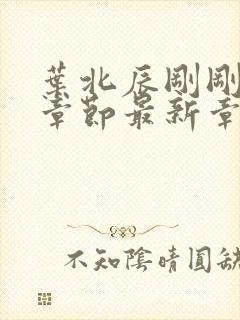 葉北辰剛剛
章節最新章
不知陰晴圓缺